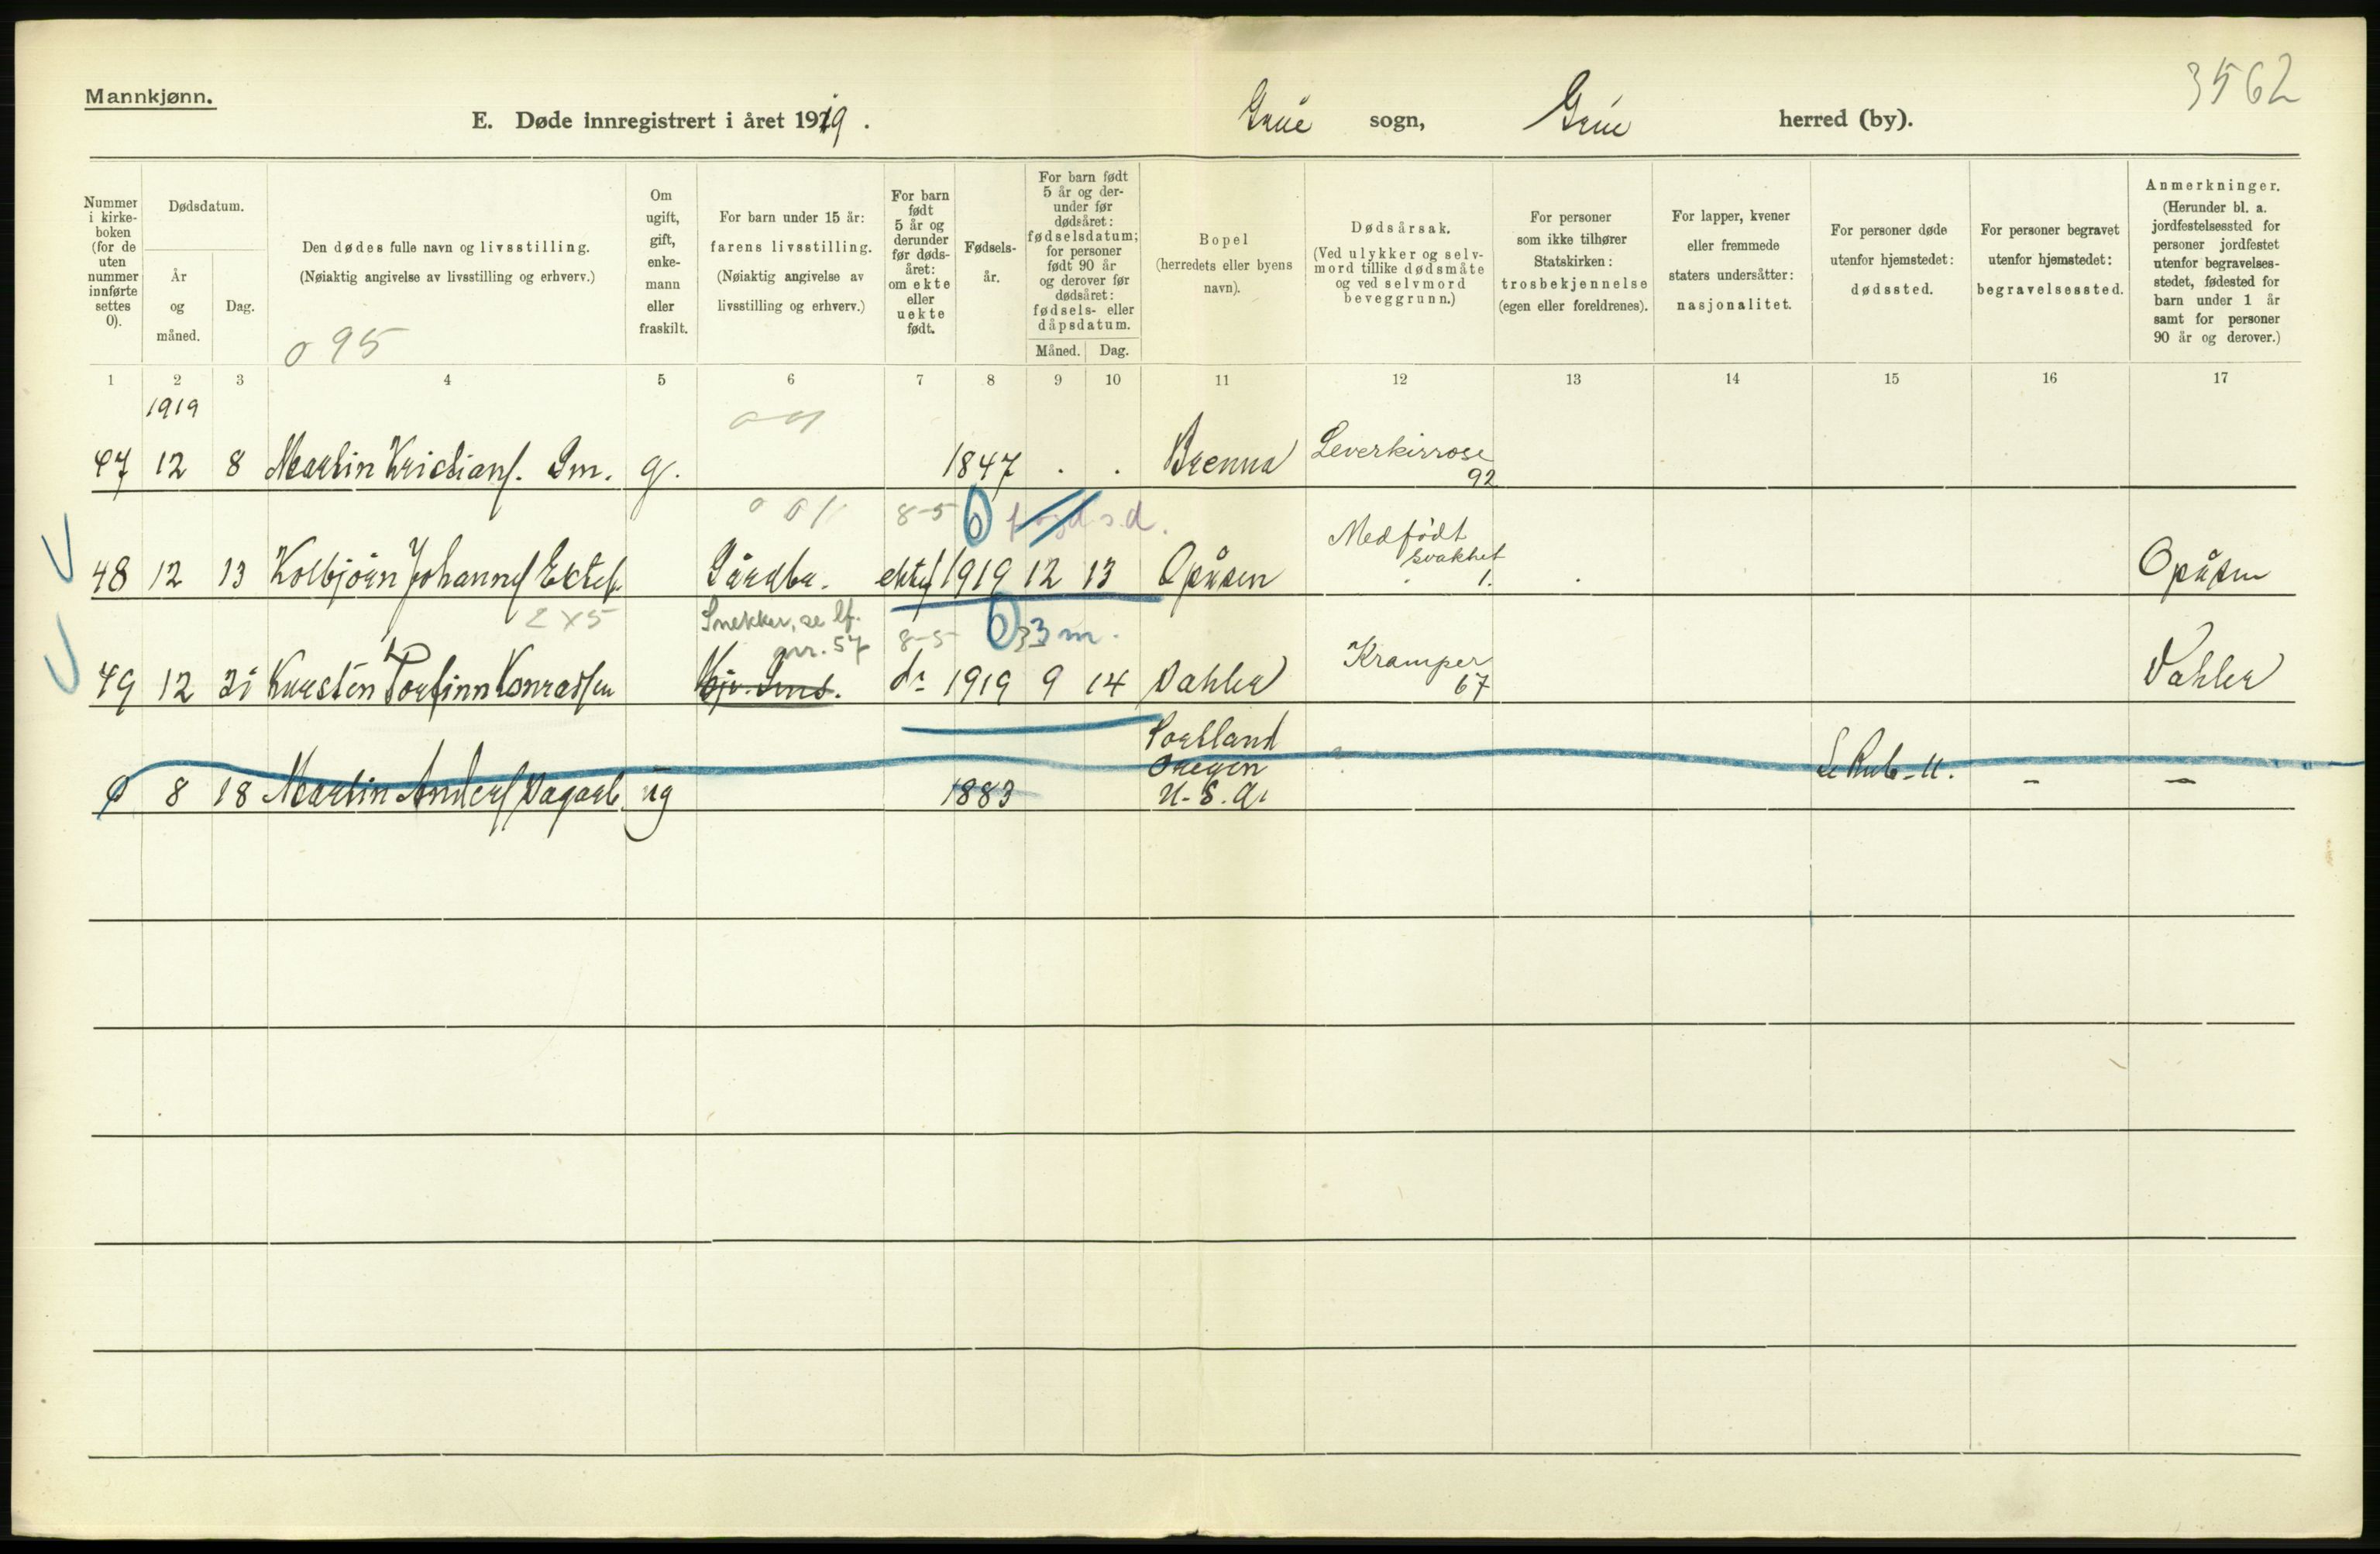 3562
Mannkjønn.
E. Døde innregistrert i året 1919.
Grue sogn, Grue herred (by).
Nummer i kirkeboken (for de uten nummer innførte settes 0).
Dødsdatum.
År og måned.
Dag.
Den dødes fulle navn og livsstilling.
(Nøiaktig angivelse av livsstilling og erhverv.)
095
Om ugift, gift, enkemann eller fraskilt.
For barn under 15 år:
farens livsstilling.
(Nøiaktig angivelse av livsstilling og erhverv.)
For barn født 5 år og derunder før dødsåret: om ekte eller uekte født.
Fødselsår.
For barn født 5 år og derunder før dødsåret: fødselsdatum; for personer født 90 år og derover før dødsåret: fødsels- eller dåpsdatum.
Måned. Dag.
Bopel (herredets eller byens navn).
Dødsårsak.
(Ved ulykker og selvmord tillike dødsmåte og ved selvmord beveggrunn.)
For personer som ikke tilhører Statskirken: trosbekjennelse (egen eller foreldrenes).
For lapper, kvener eller fremmede staters undersåtter: nasjonalitet.
For personer døde utenfor hjemstedet: dødssted.
For personer begravet utenfor hjemstedet: begravelsessted.
Anmerkninger.
(Herunder bl. a. jordfestelsessted for personer jordfestet utenfor begravelsesstedet, fødested for barn under 1 år samt for personer 90 år og derover.)
1 2 3 4 5 6 7 8 9 10 11 12 13 14 15 16 17
1919
47 12 8 Martin Kristians. Sm. g. 1847 . . Brenna Leverkirrose 92
8-5 6 s.d.
48 12 13 Kolbjörn Johannes Ektes. Gårdbr. ektef 1919 12 13 Opåsen Medfödt svakhet 1. Opåsen
2x5 Snekker, se lf. nr. 57 8-5 6 33 m.
49 12 21 Karsten Torfinn Konradsen Gjv. Sms. do 1919 9 14 Dahler Kramper 67 Dahler
0 8 18 Martin Anders Dagarb. ug 1883 Portland Oregon U.S.A. - -